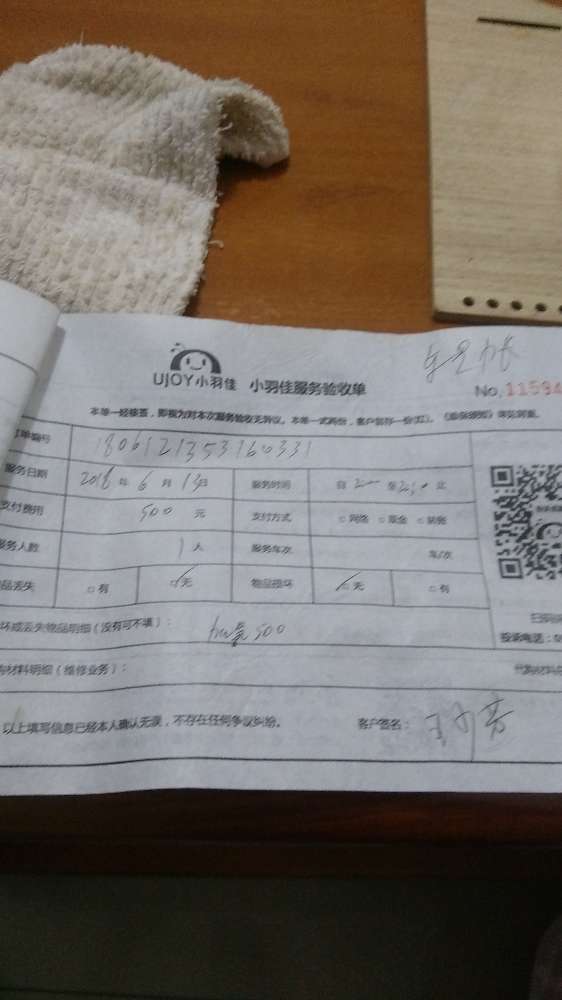 UJOY小羽佳 小羽佳服务验收单
No.11594
本单一经修签，即视为对本次服务验收无异议。本单一式两份，客户留存一份
单编号 1806121353160331
服务日期 2018年6月13日 服务时间 自 至 止
支付费用 500元 支付方式 □网络 □现金 □转账
服务人数 1人 服务车次 车/次
品丢失 □有 □无 物品损坏 □无 □有
坏或丢失物品明细（没有可不填）： 500
投诉电话：
材料明细（维修业务）：
以上填写信息已经本人确认无误，不存在任何争议纠纷。 客户签名：